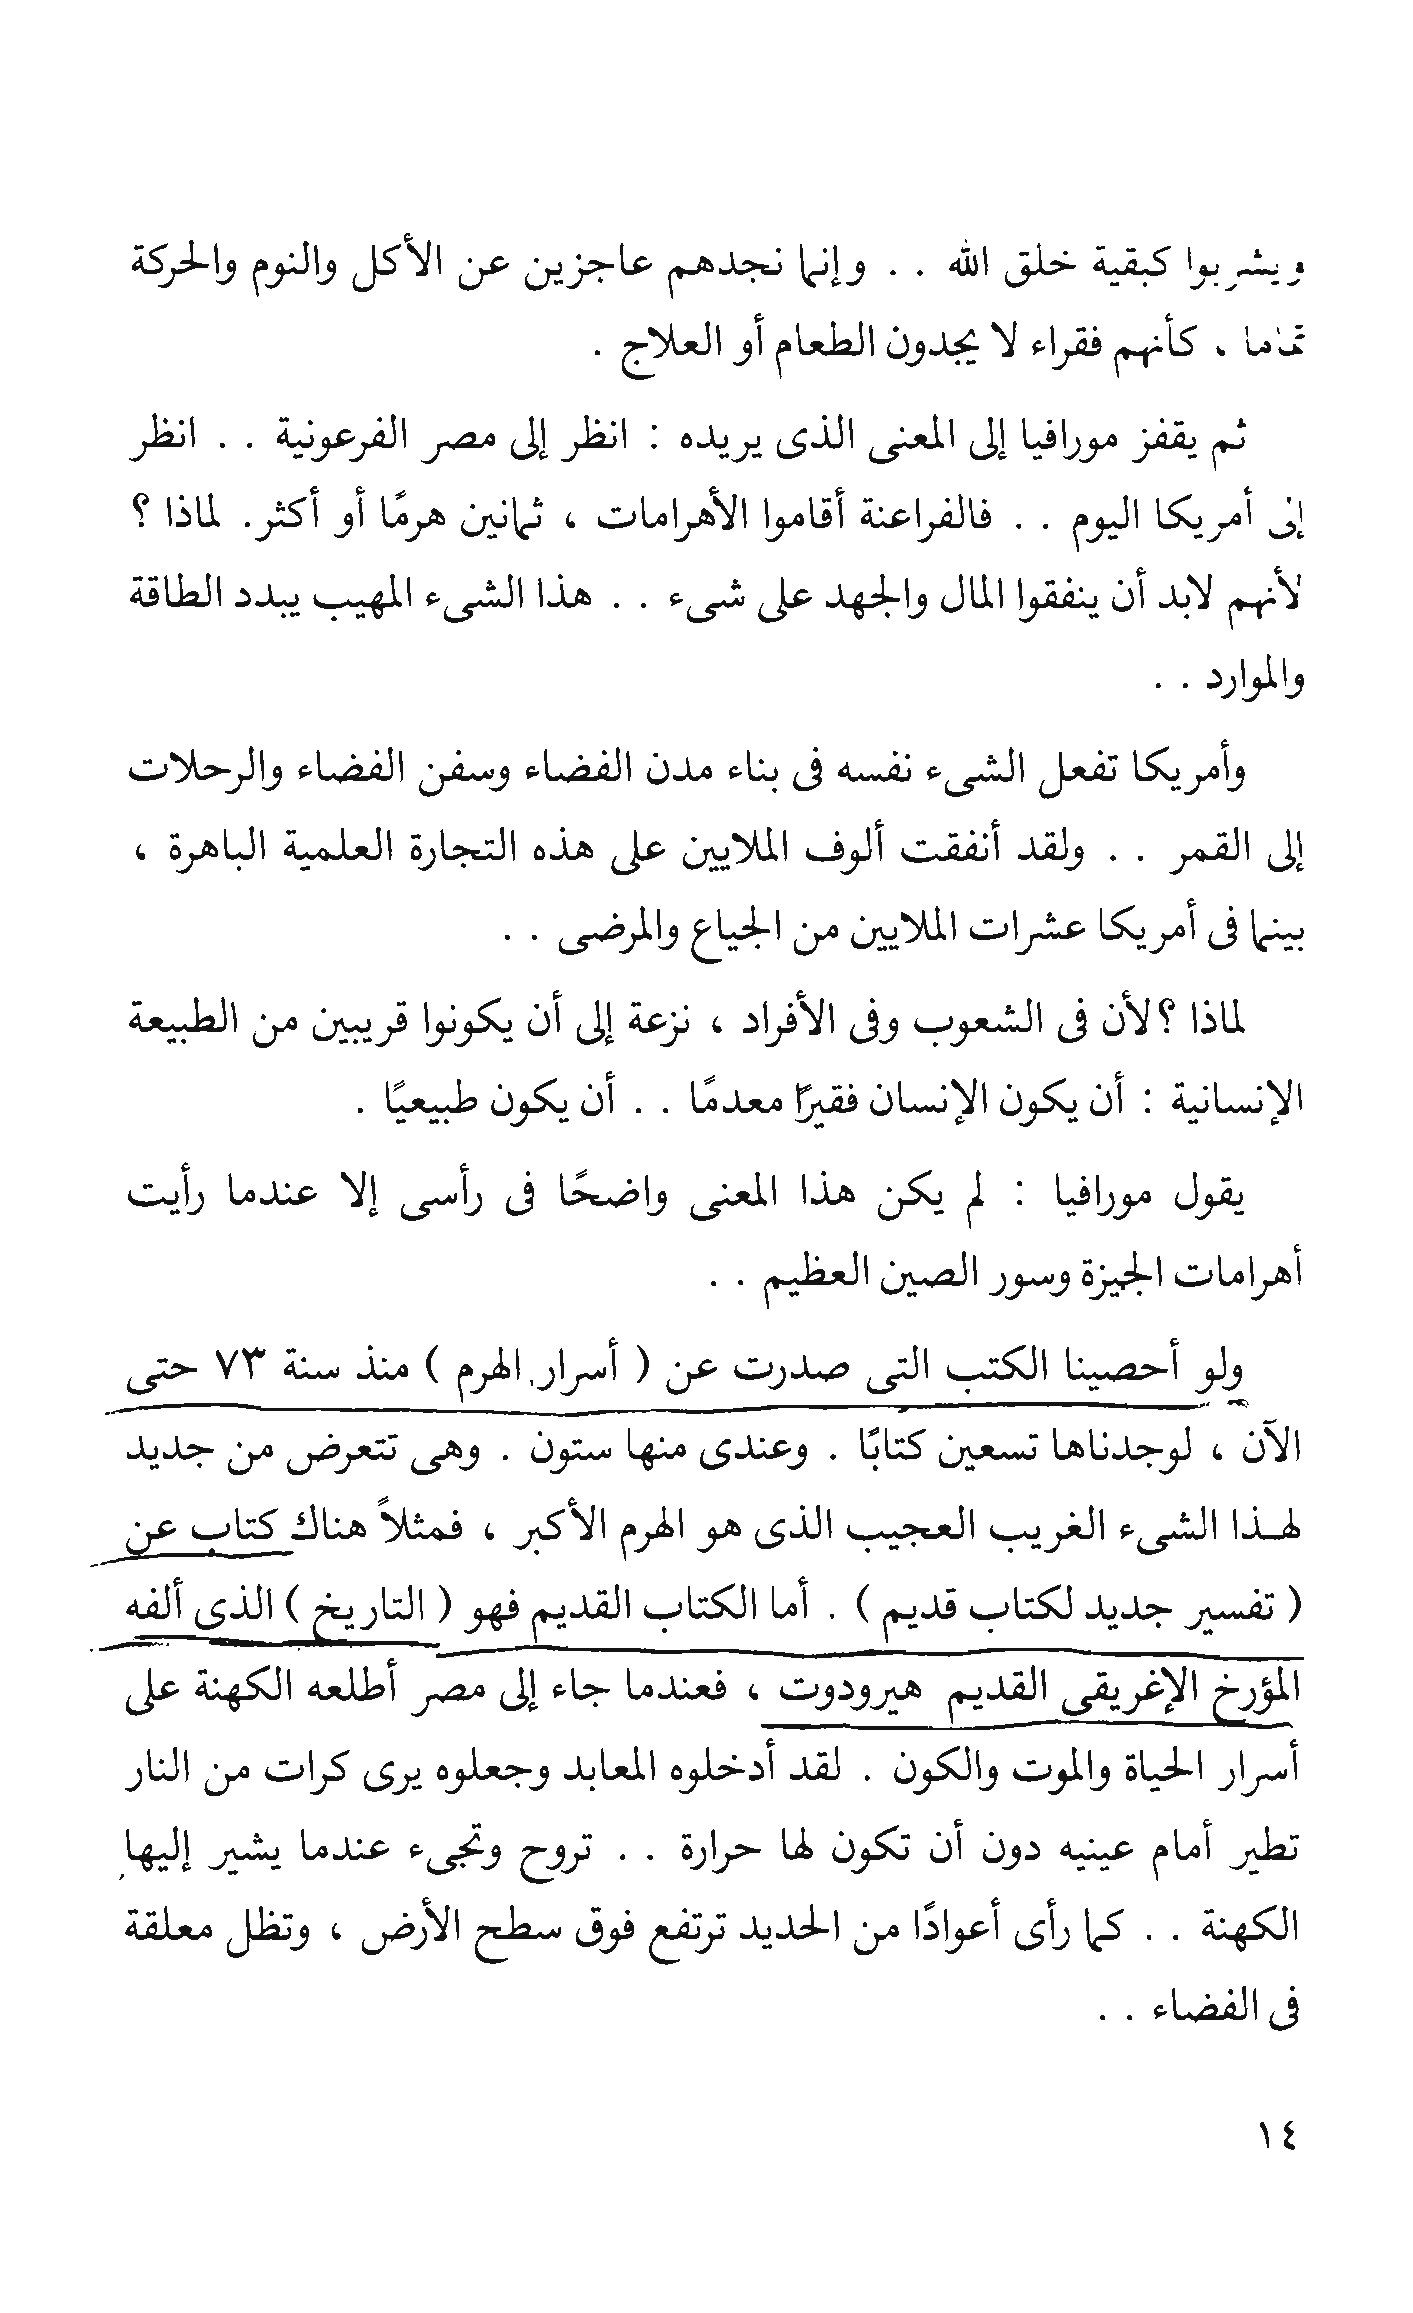 ويشربوا كبقية خلق الله . . وإنما نجدهم عاجزين عن الأكل والنوم والحركة
تمامًا ، كأنهم فقراء لا يجدون الطعام أو العلاج .
ثم يقفز مورافيا إلى المعنى الذى يريده : انظر إلى مصر الفرعونية . . انظر
إلى أمريكا اليوم . . فالفراعنة أقاموا الأهرامات ، ثمانين هرمًا أو أكثر . لماذا ؟
لأنهم لابد أن ينفقوا المال والجهد على شىء . . هذا الشىء المهيب يبدد الطاقة
والموارد . .
وأمريكا تفعل الشىء نفسه فى بناء مدن الفضاء وسفن الفضاء والرحلات
إلى القمر . . ولقد أنفقت ألوف الملايين على هذه التجارة العلمية الباهرة ،
بينما فى أمريكا عشرات الملايين من الجياع والمرضى . .
لماذا ؟ لأن فى الشعوب وفى الأفراد ، نزعة إلى أن يكونوا قريبين من الطبيعة
الإنسانية : أن يكون الإنسان فقيرًا معدمًا . . أن يكون طبيعيًا .
يقول مورافيا : لم يكن هذا المعنى واضحًا فى رأسى إلا عندما رأيت
أهرامات الجيزة وسور الصين العظيم . .
ولو أحصينا الكتب التى صدرت عن ( أسرار الهرم ) منذ سنة ٧٣ حتى
الآن ، لوجدناها تسعين كتابًا . وعندى منها ستون . وهى تتعرض من جديد
لهـذا الشىء الغريب العجيب الذى هو الهرم الأكبر ، فمثلاً هناك كتاب عن
( تفسير جديد لكتاب قديم ) . أما الكتاب القديم فهو ( التاريخ ) الذى ألفه
المؤرخ الإغريقى القديم هيرودوت ، فعندما جاء إلى مصر أطلعه الكهنة على
أسرار الحياة والموت والكون . لقد أدخلوه المعابد وجعلوه يرى كرات من النار
تطير أمام عينيه دون أن تكون لها حرارة . . تروح وتجىء عندما يشير إليها
الكهنة . . كما رأى أعوادًا من الحديد ترتفع فوق سطح الأرض ، وتظل معلقة
فى الفضاء . .
١٤